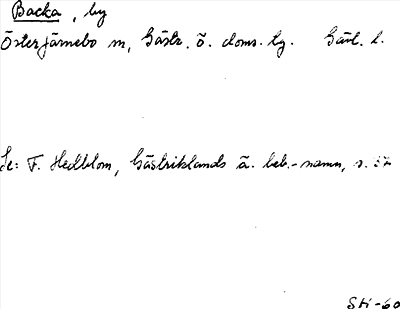 Backa, by
Österfärnebo sn, Gästr. ö. doms. hg. Gävl. l.
Se: F. Hedblom, Gästriklands ä. beb.-namn, s. 37
Sti-60